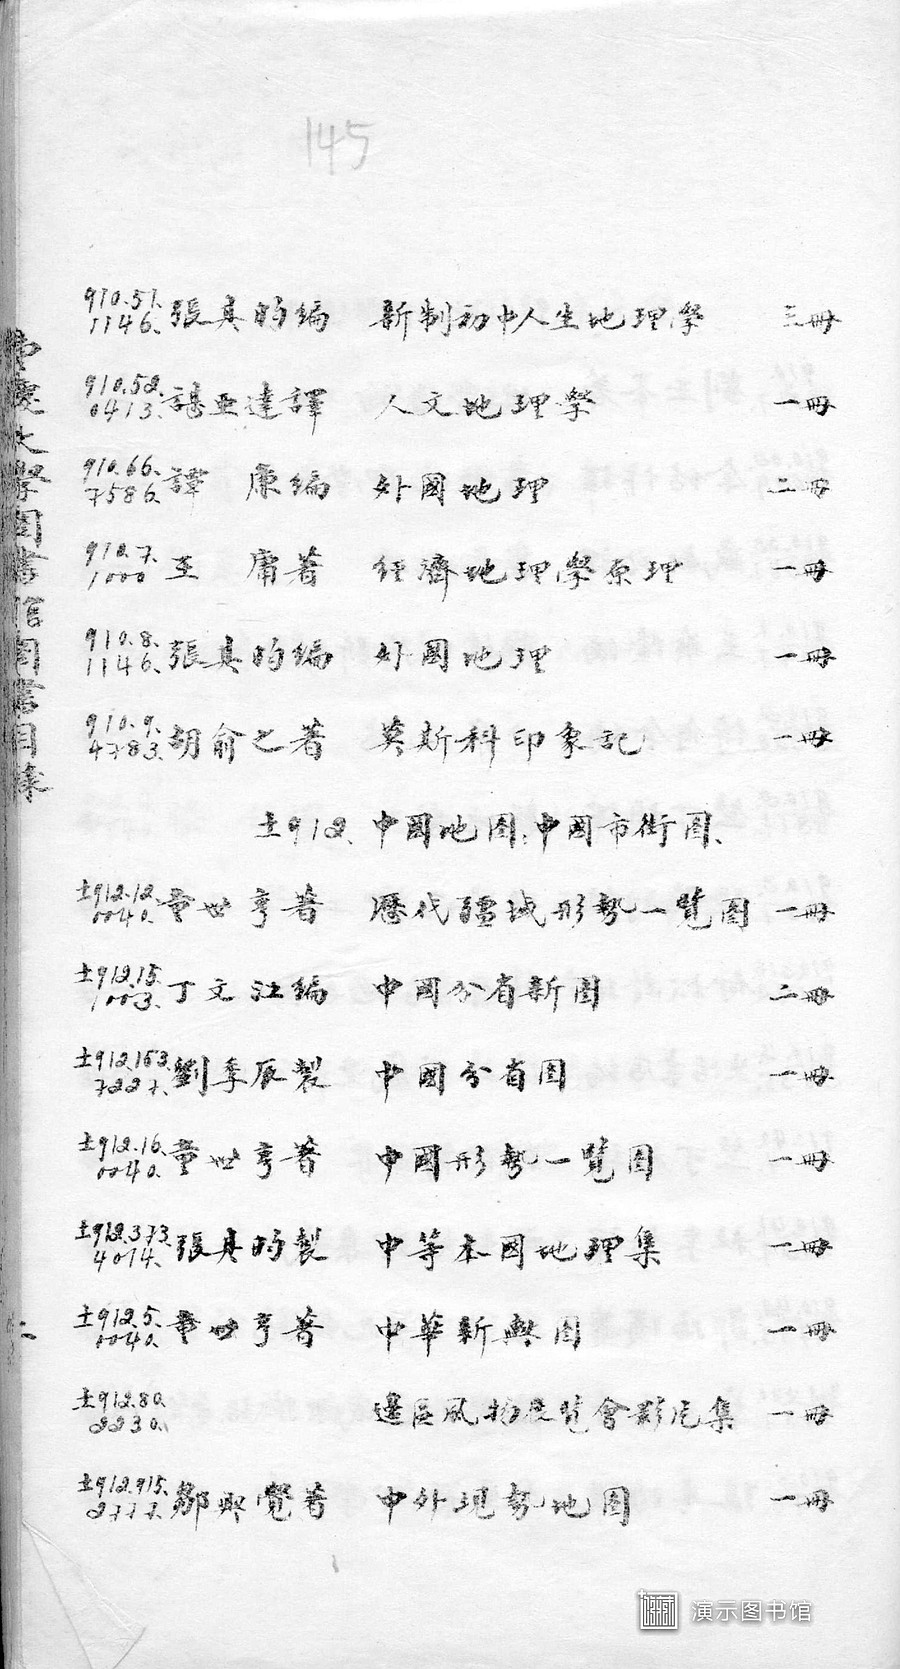 145
910.51. 1146. 張其昀編 新制初中人生地理學 三冊
910.52. 0413. 諶亞達譯 人文地理學 一冊
910.66. 7586. 譚 康編 外國地理 二冊
910.7. 1000 王 庸著 經濟地理學原理 一冊
910.8. 1146. 張其昀編 外國地理 一冊
910.9. 4783. 胡俞之著 莫斯科印象記 一冊
±912. 中國地圖.中國市街圖.
±912.12. 0040. 童世亨著 歷代疆域形勢一覽圖 一冊
±912.15. 1003. 丁文江編 中國分省新圖 二冊
±912.153. 7227. 劉季辰製 中國分省圖 一冊
±912.16. 0040. 童世亨著 中國形勢一覽圖 一冊
±912.373. 4074. 張其昀製 中等本國地理集 一冊
±912.5. 0040. 童世亨著 中華新輿圖 一冊
±912.80. 2230. 邊區風物展覽會影片集 一冊
±912.915. 2777. 鄒興覺著 中外現勢地圖 一冊
重慶大學圖書館圖書目錄
演示图书馆